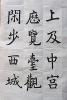 上及中宮
歷覽臺觀
閑步西城